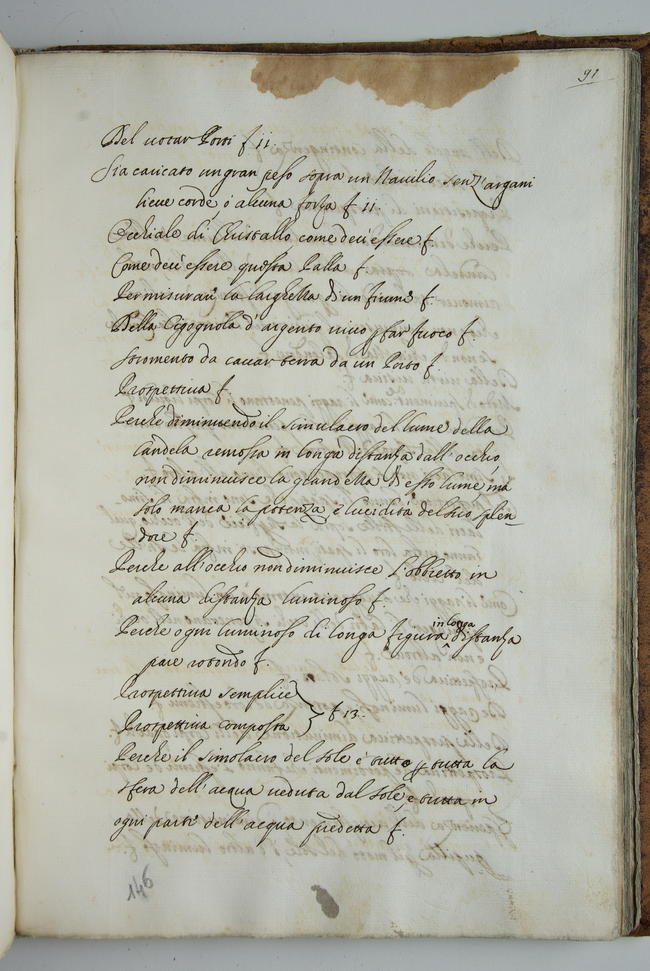 91
Del votar Porti f 11.
Sia cavicato un gran peso sopra un Navilio senz'argani
lieve corde, ò alcuna forza f 11.
Occhiale di Christallo come deci essere f.
Come deci essere questa Palla f.
Per misurar la larghezza di un fiume f.
Della Cigognola d'argento vivo p far fuoco f.
stromento da cavar terra da un Porto f.
Prospettiva f.
Perche diminuendo il simulacro del lume della
candela remossa in longa distanza dall'occhio
non diminuisce la grandezza di esso lume, ma
solo manca la potenza, e lucidità del suo splen-
dore f.
Perche all'occhio non diminuisce l'obbietto in
alcuna distanza luminoso f.
Perche ogni luminoso di longa figura in longa distanza
pare rotondo f.
Prospettiva semplice
Prospettiva composta } f 13.
Perche il simolacro del sole è tutto p tutta la
sfera dell'acqua veduta dal sole, e tutta in
ogni parte dell'acqua predetta f.
146